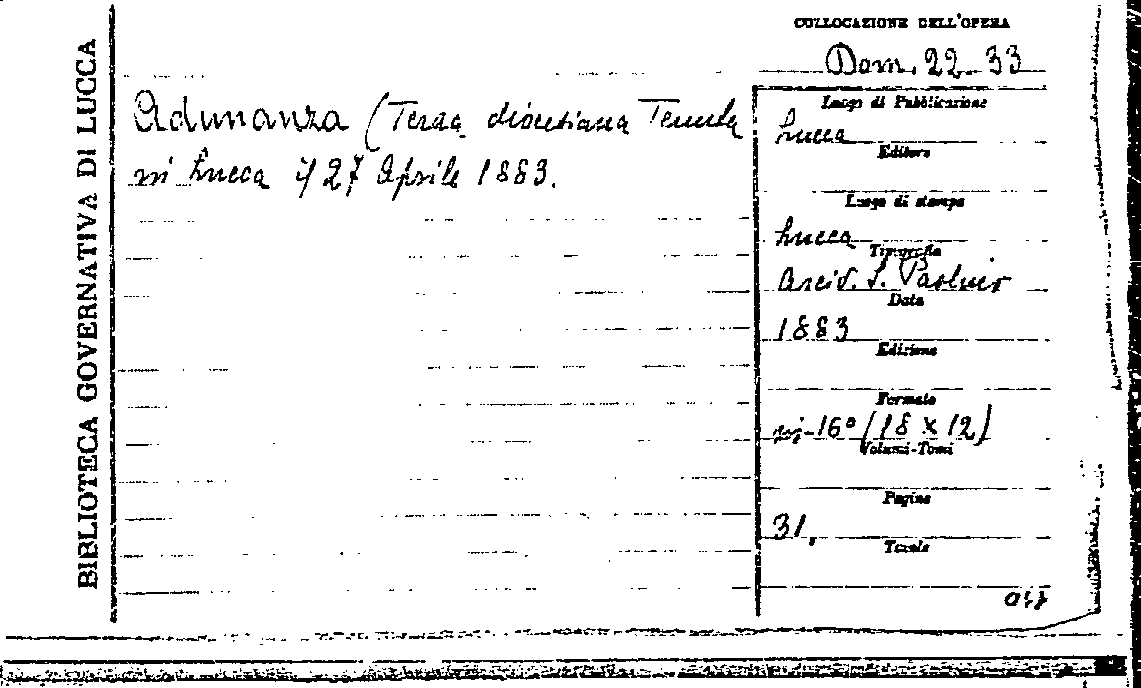 BIBLIOTECA GOVERNATIVA DI LUCCA
COLLOCAZIONE DELL'OPERA
Dom. 22-33
Adunanza (Terza diocesiana Tenuta
in Lucca il 27 Aprile 1883.
Luogo di Pubblicazione
Lucca
Editore
Luogo di stampa
Lucca
Tipografia
Arciv. S. Paolino
Data
1883
Edizione
Formato
in-16° (18 x 12)
Volumi-Tomi
Pagine
31.
Tavole